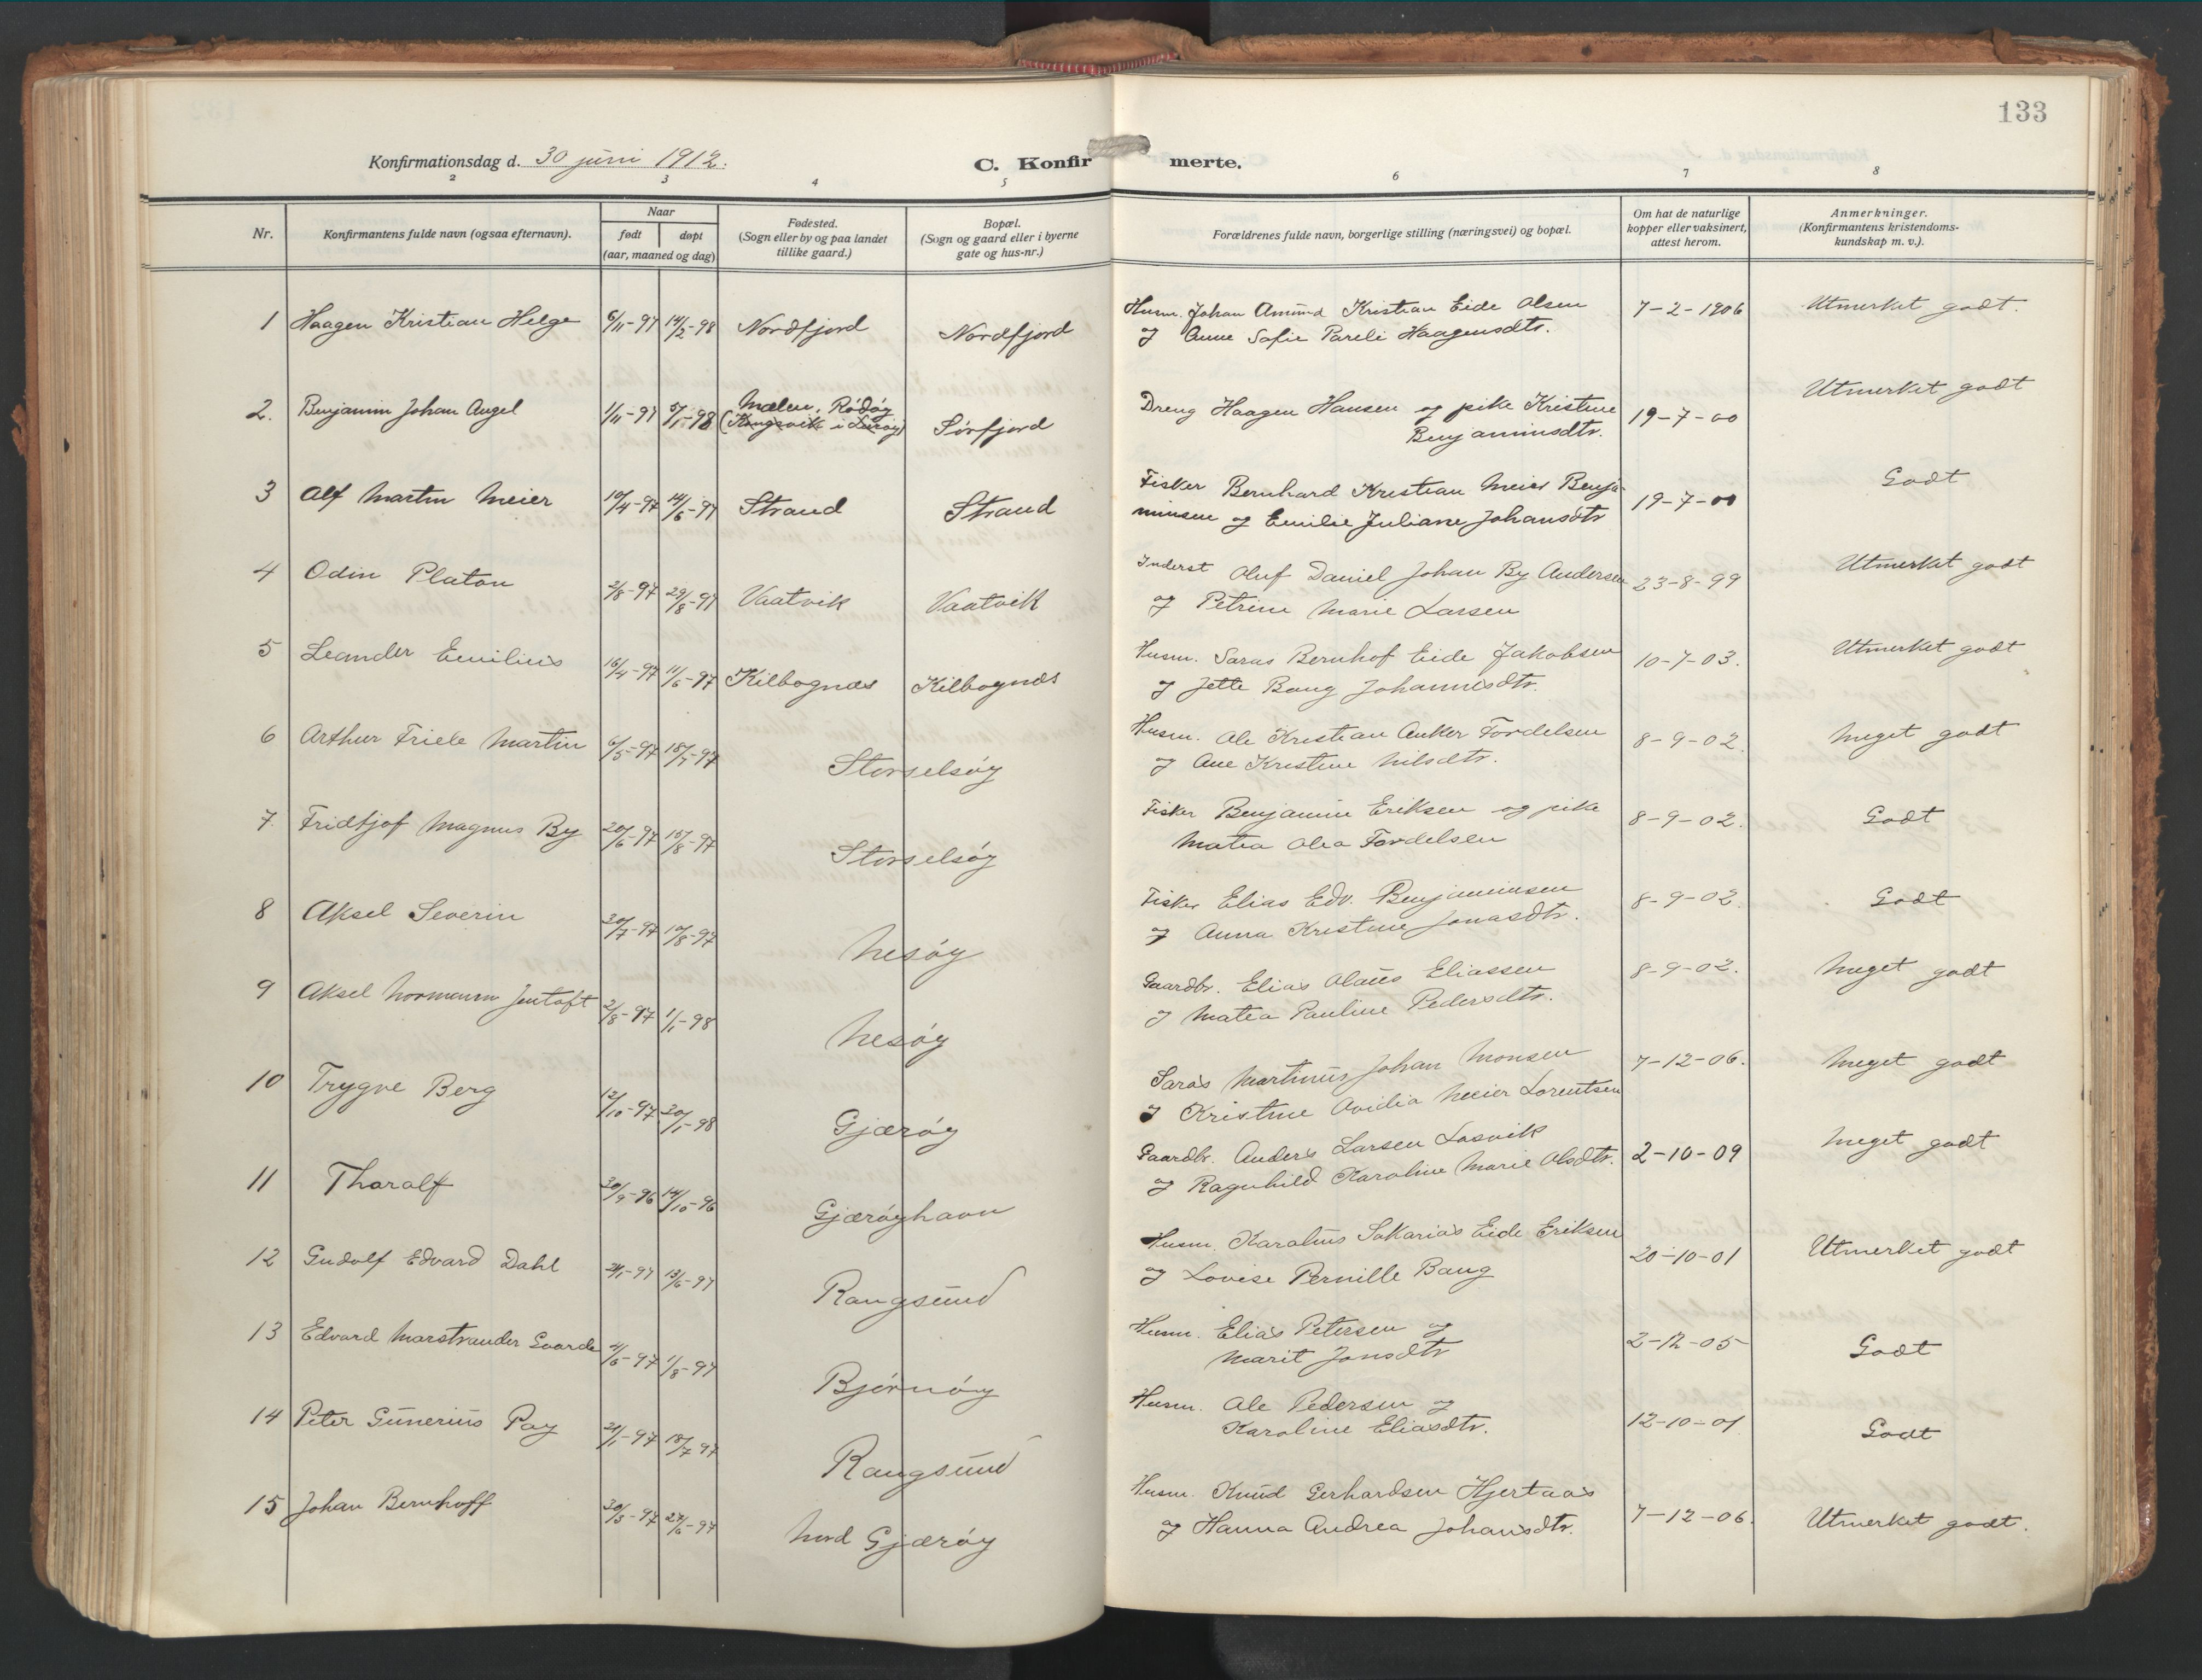 133
Konfirmationsdag d. 30 juni 1912.
C. Konfirmerte.
2 3 4 5 6 7 8
Nr.
Konfirmantens fulde navn (ogsaa efternavn).
Naar
født | døpt
(aar, maaned og dag)
Fødested.
(Sogn eller by og paa landet
tillike gaard.)
Bopæl.
(Sogn og gaard eller i byerne
gate og hus-nr.)
Forældrenes fulde navn, borgerlige stilling (næringsvei) og bopæl.
Om hat de naturlige
kopper eller vaksinert,
attest herom.
Anmerkninger.
(Konfirmantens kristendoms-
kundskap m. v.).
1 Haagen Kristian Helge 6/11-97 14/2-98 Nordfjord Nordfjord
Husm. Johan Amund Kristian Eide Olsen
og Anne Sofie Pareli Haagensdtr.
7-2-1906 Utmerket godt.
2. Benjamin Johan Angel 1/11-97 5/1-98 Mælen, Rödöy
(Kongsvik i Luröy) Sörfjord
Dreng Haagen Hansen og pike Kristine
Benjaminsdtr.
19-7-00 Utmerket godt
3 Alf Martin Meier 10/4-97 14/6-97 Strand Strand
Fisker Bernhard Kristian Meier Benja-
minsen og Emilie Juliane Johansdtr
19-7-00 Godt
4 Odin Platon 2/8-97 29/8-97 Vaatvik Vaatvik
Inderst Oluf Daniel Johan By Andersen
og Petrine Marie Larsen
23-8-99 Utmerket godt
5 Leander Emilius 16/4-97 11/6-97 Kilbognæs Kilbognæs
Husm. Saras Bernhof Eide Jakobsen
og Jette Bang Johannesdtr.
10-7-03. Utmerket godt
6 Arthur Friele Martin 6/5-97 18/7-97 Storselsöy
Husm. Ole Kristian Anker Tordelsen
og Ane Kristine Nilsdtr.
8-9-02. Meget godt
7. Fridtjof Magnus By 20/6-97 15/8-97 Storselsöy
Fisker Benjamin Eriksen og pike
Matea Olea Tordelsen
8-9-02. Godt
8 Aksel Severin 30/7-97 10/8-97 Nesöy
Fisker Elias Edv. Benjaminsen
og Anna Kristine Jonasdtr.
8-9-02. Godt
9 Aksel Normann Jentoft 2/8-97 1/1-98 Nesöy
Gaardbr. Elias Olaus Eliassen
og Matea Pauline Pedersdtr.
8-9-02. Meget godt
10 Trygve Berg 12/10-97 30/1-98 Gjæröy
Saras Martinus Johan Monsen
og Kristine Ovidia Meier Lorentsen
7-12-06. Meget godt
11 Tharalf 30/9-96 14/10-96 Gjæröyhavn
Gaardbr. Anders Larsen Losvik
og Ragnhild Karoline Marie Olsdtr.
2-10-09 Meget godt
12 Gudolf Edvard Dahl 21/1-97 13/6-97 Rangsund
Husm. Karolius Sakarias Eide Eriksen
og Lovise Pernille Bang
20-10-01 Utmerket godt
13 Edvard Marstrander Gaarde 4/6-97 1/8-97 Björnöy
Husm. Elias Petersen og
Marit Jonsdtr
2-12-05 Godt
14 Peter Gunerius Pay 21/1-97 18/7 97 Rangsund
Husm. Ole Pedersen og
Karoline Eliasdtr.
12-10-01 Godt
15 Johan Bernhoff 30/3-97 27/6-97 Nord Gjæröy
Husm. Knud Gerhardsen Hjertaas
og Hanna Andrea Johansdtr.
7-12-06. Utmerket godt.